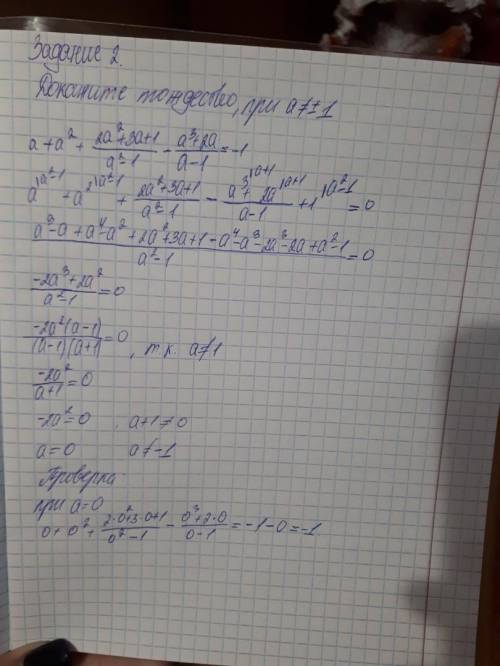 Задание 2.
Докажите тождество, при a≠±1
a + a² + (2a²+3a+1)/(a²-1) - (a³+2a)/(a-1) = -1
a^{|a²-1} + a²^{|a²-1} + (2a²+3a+1)/(a²-1) - (a³^{|a+1} + 2a^{|a+1})/(a-1) + 1^{|a²-1} = 0
(a³-a+a⁴-a²+2a²+3a+1-a⁴-a³-2a³-2a+a²-1)/(a²-1) = 0
(-2a³+2a²)/(a²-1) = 0
(-2a²(a-1))/((a-1)(a+1)) = 0, т.к. a≠1
(-2a²)/(a+1) = 0
-2a²=0 , a+1≠0
a=0 a≠-1
Проверка
при a=0
0 + 0² + (2·0²+3·0+1)/(0²-1) - (0³+2·0)/(0-1) = -1-0=-1